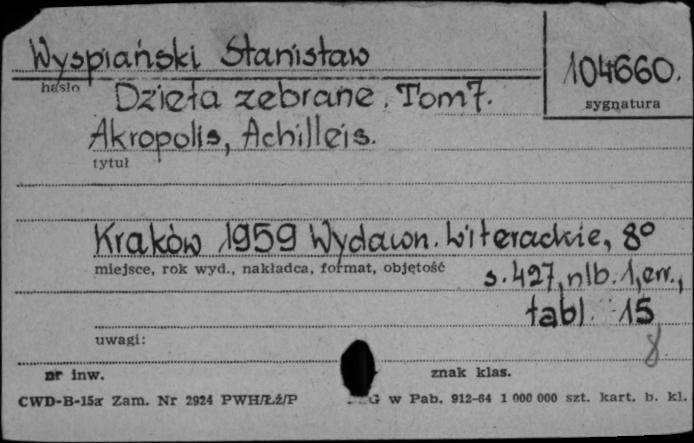 Wyspiański Stanisław
104660.
hasło
sygnatura
Dzieła zebrane. Tom 7.
Akropolis, Achilleis.
tytuł
Kraków 1959 Wydawn. Literackie, 8°
miejsce, rok wyd., nakładca, format, objętość
s. 427, nlb. 1, err.,
tabl. 15
uwagi:
8
nr inw.
znak klas.
CWD-B-15a Zam. Nr 2924 PWH/Łź/P
G w Pab. 912-64 1 000 000 szt. kart. b. kl.